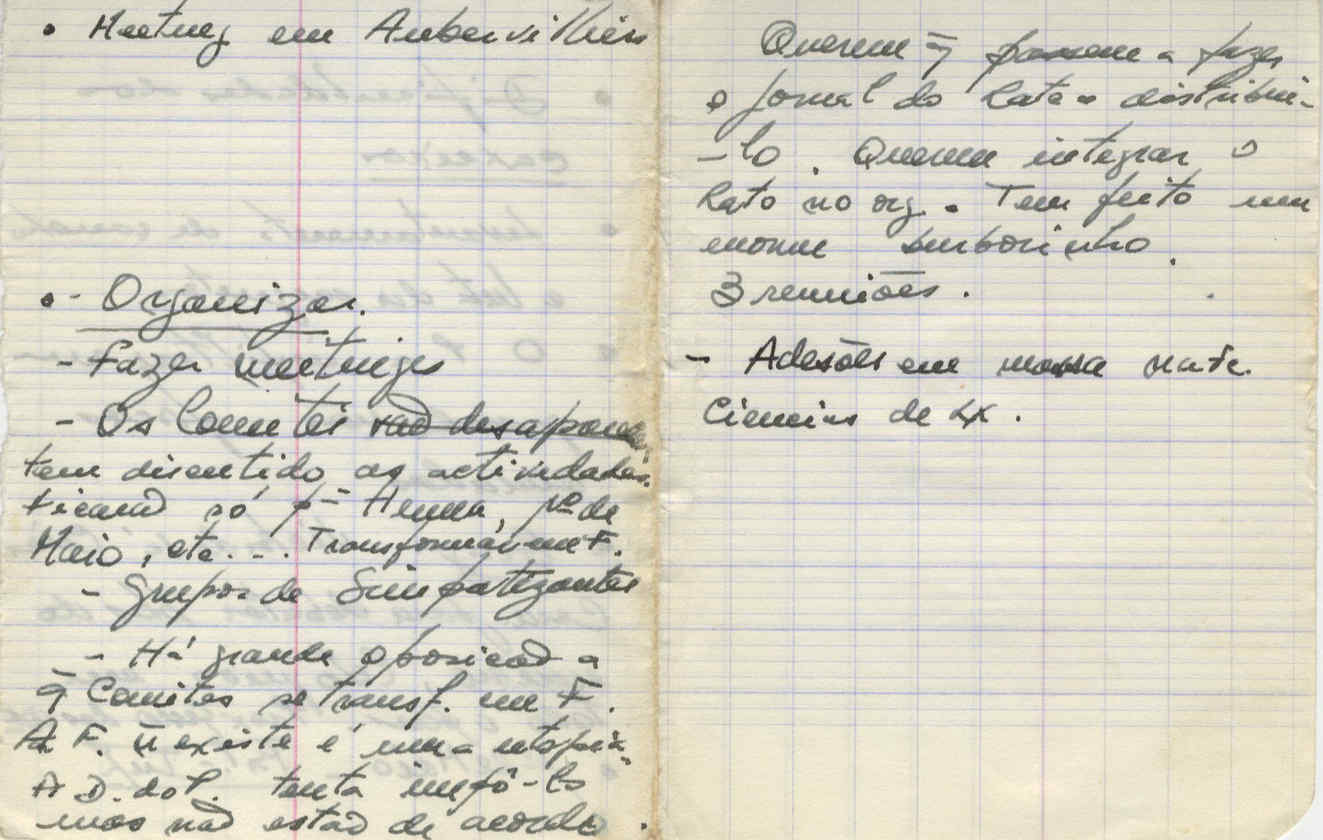 • Meeting em Aubervilliers
•- Organizar.
- Fazer meetings
- Os Comités não desaparecem,
tem discutido as actividades.
ficarão só p- 1º de
Maio, etc... Transformar em F.
- Grupos de Simpatizantes
- Há grande oposição a
q̄ Comités se transf. em F.
A F. ñ existe é uma utopia.
A D. do P. tenta impô-lo
mas não estão de acordo.
Querem q̄ passem a fazer
o jornal do Cato e distribui-
-lo. Querem integrar o
Cato no org. Tem feito um
enorme burborinho.
3 reuniões.
- Adesões em massa
Ciencias de Lx.